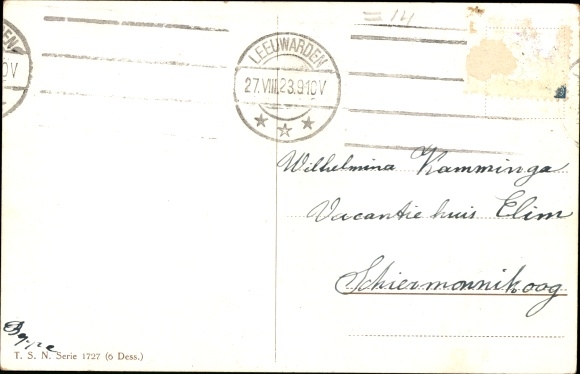 = 14
LEEUWARDEN
27.VIII.23.9-10V
Wilhelmina Kamminga
Vacantie huis Elim
Schiermonnikoog
Beppe
T. S. N. Serie 1727 (6 Dess.)